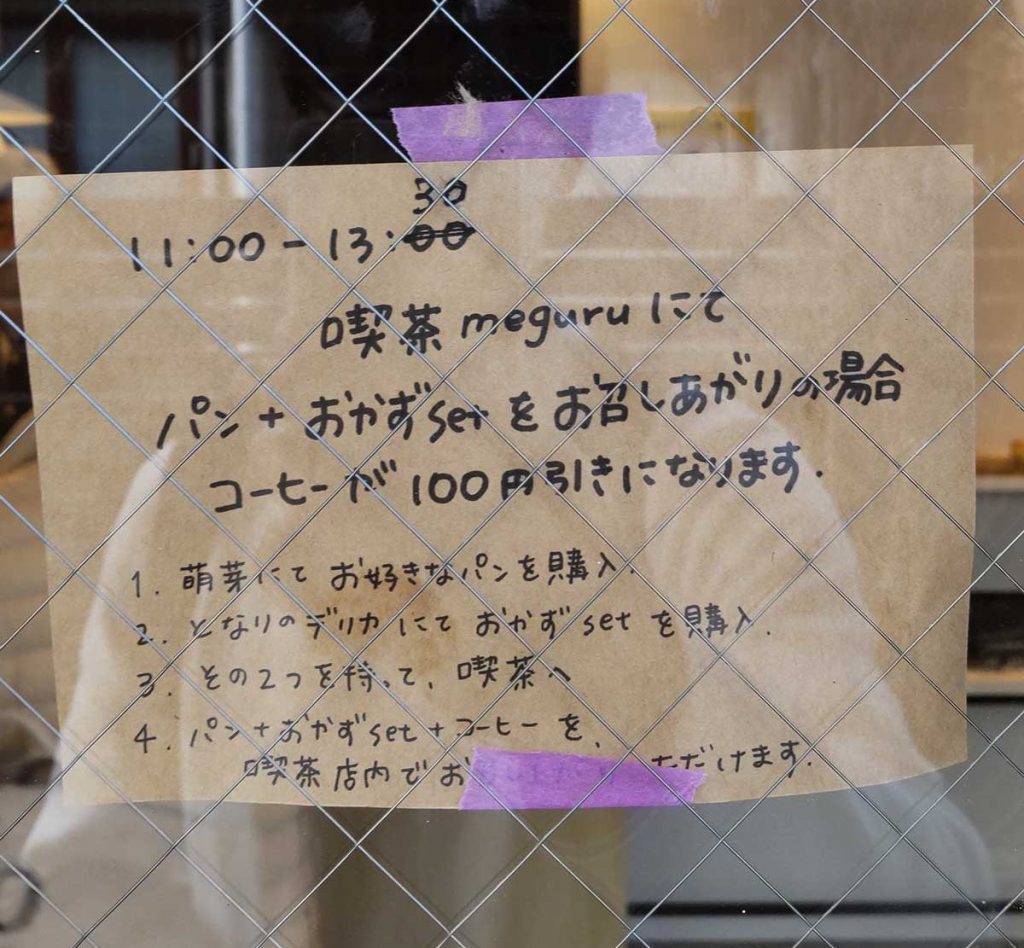 30
11:00 - 13:00
喫茶 meguru にて
パン + おかずset を お召しあがりの場合
コーヒーが 100円引きになります.
1. 萌芽にて お好きなパンを購入.
2. となりのデリカにて おかずset を購入.
3. その2つを持って、喫茶へ
4. パン+おかずset+コーヒーを、
喫茶店内でお ただけます.